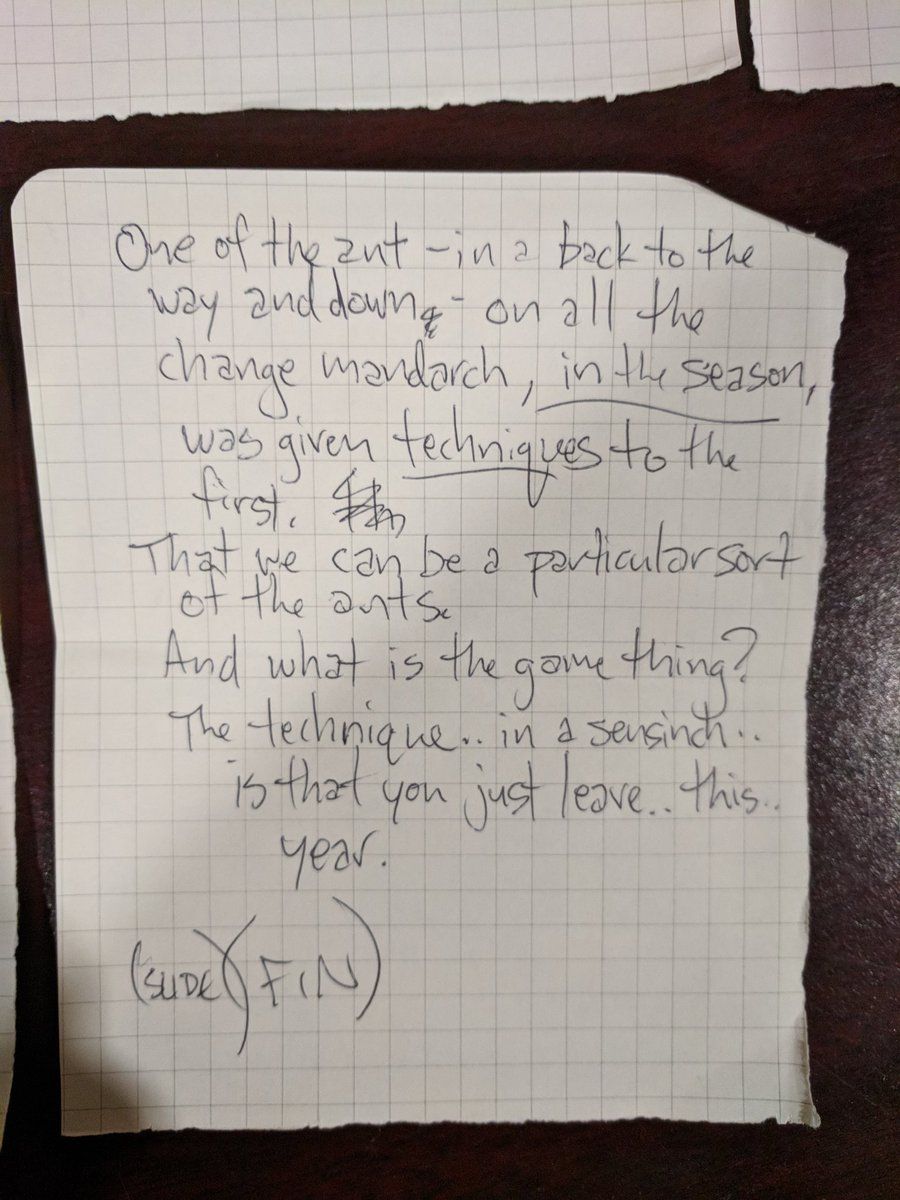 One of the ant - in a back to the
way and down, - on all the
change mandarch, in the season,
was given techniques to the
first.
That we can be a particular sort
of the ants.
And what is the game thing?
The technique.. in a sensinch..
is that you just leave.. this..
year.
(SLIDE) (FIN)